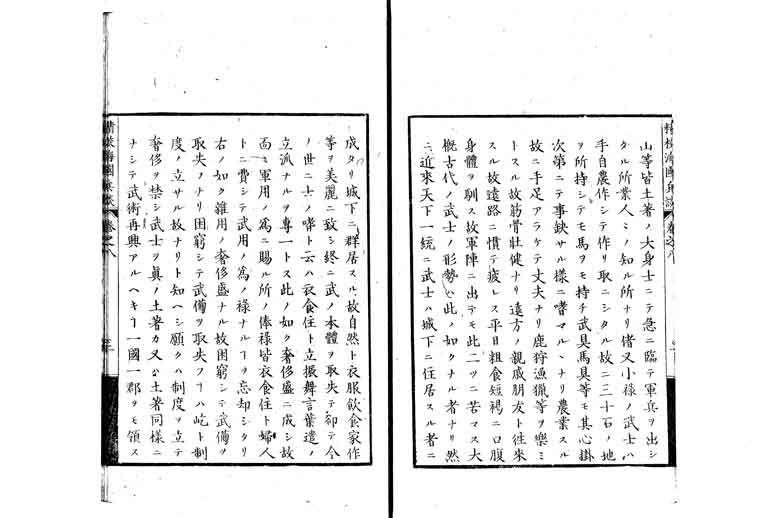 山等皆土著ノ大身士ニテ急ニ臨テ軍兵ヲ出シ
タル所業人ミノ知ル所ナリ偖又小禄ノ武士ハ
手自農作シテ作リ取ニシタル故ニ三十石ノ地
ヲ所持シテモ馬ヲモ持チ武具馬具等モ其心掛
次第ニテ事缺サル樣ニ嗜マルヽナリ農業スル
故ニ手足アラケテ丈夫ナリ鹿狩漁猟等ヲ樂ミ
トスル故筋骨壯健ナリ遠方ノ親戚朋友ト徃來
スル故遠路ニ慣テ疲レス平日粗食短褐ニ口腹
身體ヲ馴ス故軍陣ニ出テモ此二ツニ苦マス大
概古代ノ武士ノ形勢ハ此ノ如クナル者ナリ然
ニ近來天下一統ニ武士ハ城下ニ住居スル者ニ
精校海國兵談 卷之八
成タリ城下ニ群居スル故自然ト衣服飲食家作
等ヲ美麗ニ致シ終ニ武ノ本體ヲ取失テ卻テ今
ノ世ニ士ノ嗜ト云ハ衣食住ト立振舞言葉遣ノ
立派ナルヲ專一トス此ノ如ク奢侈盛ニ成シ故
面ミ軍用ノ爲ニ賜ル所ノ俸祿皆衣食住ト婦人
トニ費シテ武用ノ爲ノ祿ナルヿヲ忘却シタリ
右ノ如ク雜用ノ奢侈盛ナル故困窮シテ武備ヲ
取失ノナリ困窮シテ武備ヲ取失フヿハ屹ト制
度ノ立サル故ナリト知ヘシ願クハ制度ヲ立テ
奢侈ヲ禁シ武士ヲ眞ノ土著カ又ハ土著同樣ニ
ナシテ武術再興アルヘキヿ一國一郡ヲモ領ス
精校海國兵談 卷之八